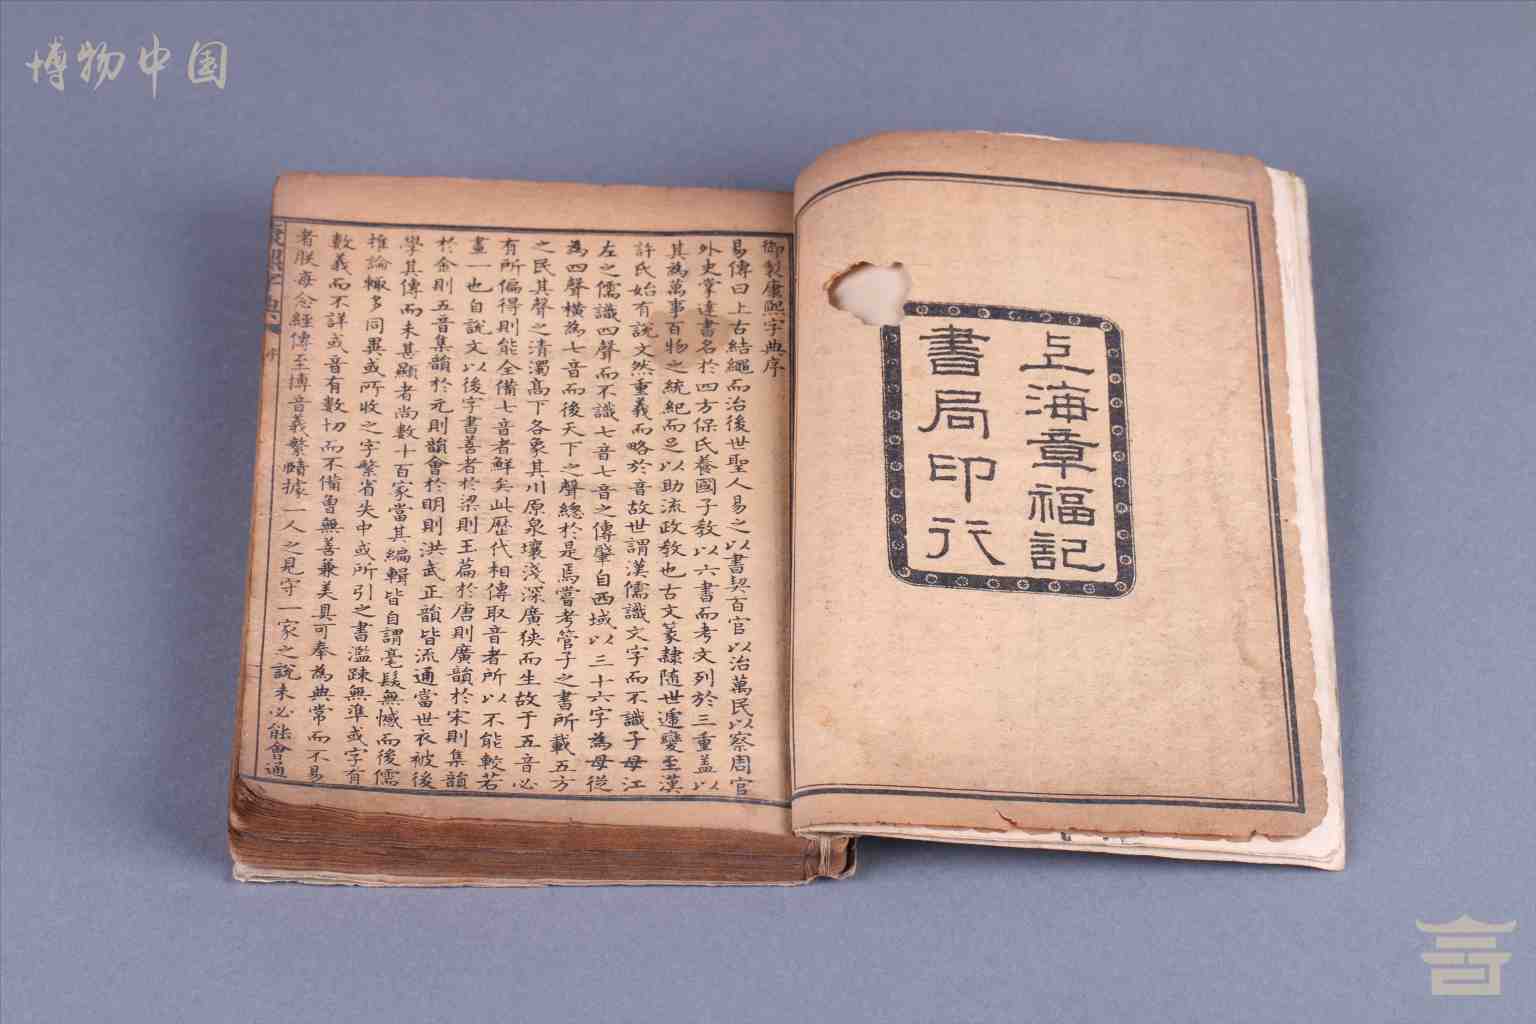 博物中国
上海章福記
書局印行
御製康熙字典序
易傳曰上古結繩而治後世聖人易之以書契百官以治萬民以察周官
外史掌達書名於四方保氏養國子教以六書而考文列於三重蓋以
其為萬事百物之統紀而足以助流政教也古文篆隸隨世遞變至漢
許氏始有說文然重義而略於音故世謂漢儒識文字而不識子母江
左之儒識四聲而不識七音七音之傳肇自西域以三十六字為母從
為四聲橫為七音而後天下之聲總於是焉嘗考管子之書所載五方
之民其聲之清濁高下各象其川原泉壤淺深廣狹而生故于五音必
有所偏得則能全備七音者鮮矣此歷代相傳取音者所以不能較若
畫一也自說文以後字書善者於梁則玉篇於唐則廣韻於宋則集韻
於金則五音集韻於元則韻會於明則洪武正韻皆流通當世衣被後
學其傳而未甚顯者尚數十百家當其編輯皆自謂毫髮無憾而後儒
推論輒多同異或所收之字繁省失中或所引之書濫疎無準或字有
數義而不詳或音有數切而不備曾無善兼美具可奉為典常而不易
者朕每念經傳至博音義繁賾據一人之見守一家之說未必能會通
康熙字典 序